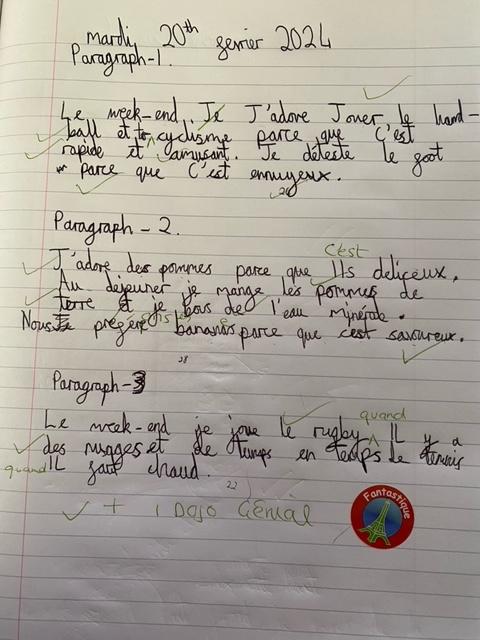 mardi 20th fevrier 2024
Paragraph-1.
Le week-end, Je J'adore Jouer le hand-
ball et cyclisme parce que C'est
rapide et amusant. Je déteste le foot
parce que C'est ennuyeux.
Paragraph - 2.
C'est
J'adore des pommes parce que Ils deliceux.
Au dejeuner je mange les pommes de
terre et je bois de l'eau minérale.
Nous préfére bananas parce que c'est savoureux.
28
Paragraph-3
quand
Le week-end je joue le rugby IL y a
des nuages et de temps en temps le tennis
quand IL fait chaud.
22
+ 1 DoJo Génial
Fantastique